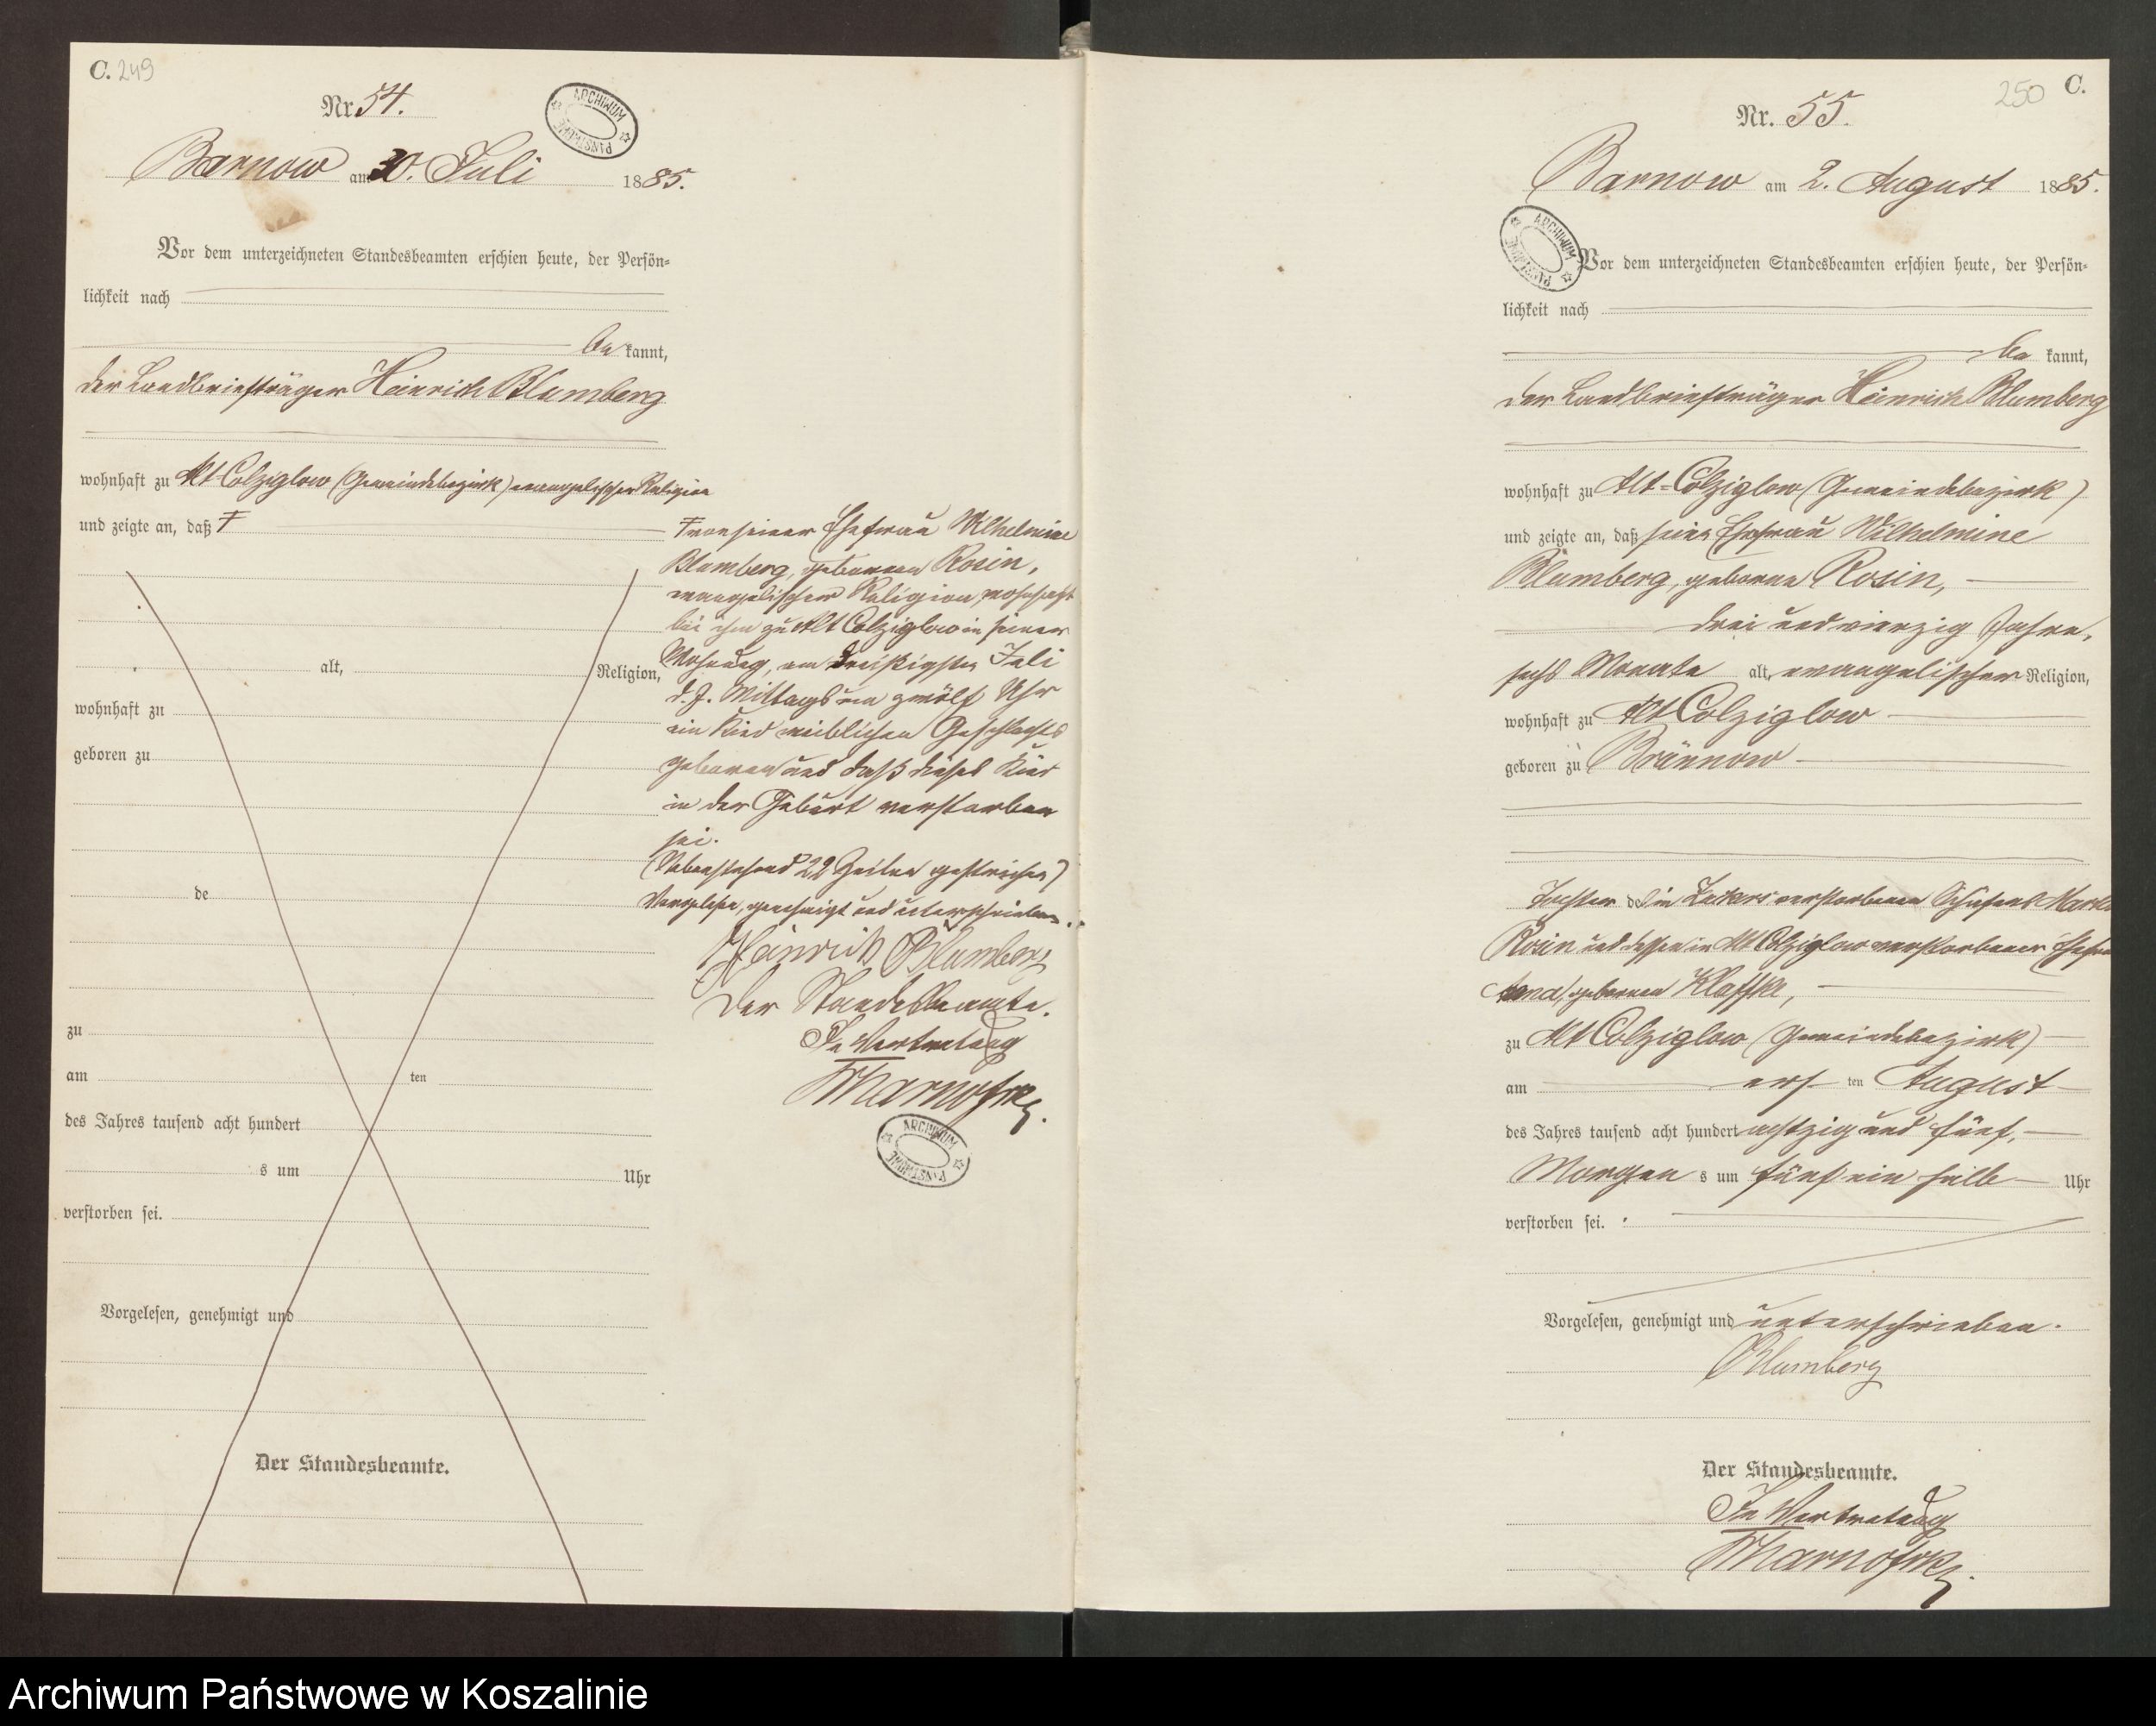 C. 249
Nr. 54.
ARCHIWUM PAŃSTWOWE
Barnow am 30. Juli 1885.
Vor dem unterzeichneten Standesbeamten erschien heute, der Persön-
lichkeit nach
be kannt,
der Landbriefträger Heinrich Blumberg
wohnhaft zu Alt-Colziglow (Gemeindebezirk) evangelischer Religion
und zeigte an, daß
von seiner Ehefrau Wilhelmine
Blumberg, geborenen Rosin,
evangelischer Religion, wohnhaft
bei ihm zu Alt Colziglow in seiner
Wohnung, am dreißigsten Juli
d. J. Mittags um zwölf Uhr
ein Kind weiblichen Geschlechts
geboren und daß dieses Kind
in der Geburt verstorben
sei.
(Nebenstehend 22 Zeilen gestrichen)
Vorgelesen, genehmigt und unterschrieben.
Heinrich Blumberg
Der Standesbeamte.
In Vertretung
ARCHIWUM PAŃSTWOWE
alt, Religion,
wohnhaft zu
geboren zu
de
zu
am ten
des Jahres tausend acht hundert
s um Uhr
verstorben sei.
Vorgelesen, genehmigt und
Der Standesbeamte.
250 C.
Nr. 55.
Barnow am 2. August 1885.
ARCHIWUM PAŃSTWOWE
Vor dem unterzeichneten Standesbeamten erschien heute, der Persön-
lichkeit nach
be kannt,
der Landbriefträger Heinrich Blumberg
wohnhaft zu Alt-Colziglow (Gemeindebezirk)
und zeigte an, daß seine Ehefrau Wilhelmine
Blumberg, geborne Rosin,
drei und vierzig Jahre,
sechs Monate alt, evangelischer Religion,
wohnhaft zu Alt Colziglow
geboren zu Brünnow
Tochter des in verstorbenen
Rosin und dessen in Alt Colziglow verstorbener
geborenen Klaffke,
zu Alt Colziglow (Gemeindebezirk)
am ers ten August
des Jahres tausend acht hundert achtzig und fünf,
Morgen s um fünf ein halb Uhr
verstorben sei.
Vorgelesen, genehmigt und unterschrieben.
Blumberg
Der Standesbeamte.
In Vertretung
Archiwum Państwowe w Koszalinie